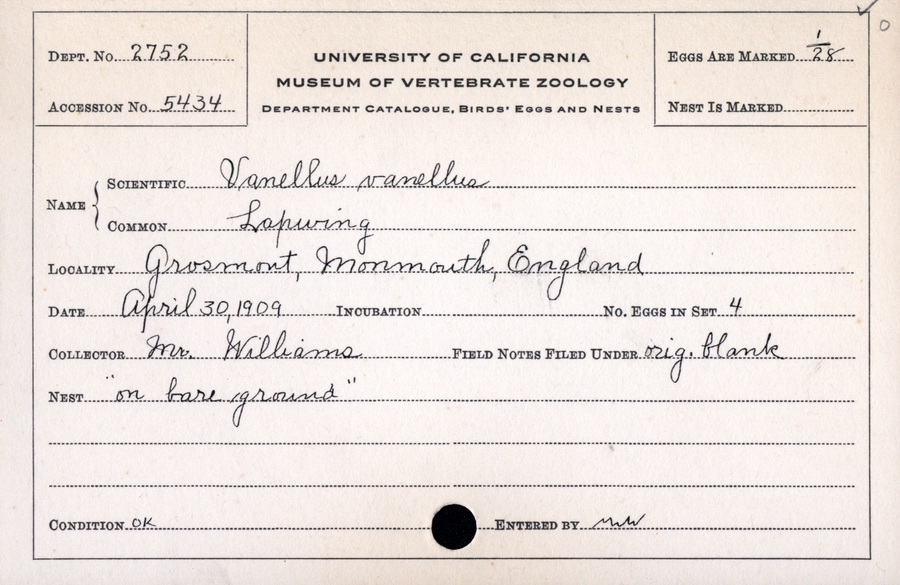 DEPT. NO. 2752
ACCESSION NO. 5434
UNIVERSITY OF CALIFORNIA
MUSEUM OF VERTEBRATE ZOOLOGY
DEPARTMENT CATALOGUE, BIRDS' EGGS AND NESTS
EGGS ARE MARKED 1/28
NEST IS MARKED
NAME
SCIENTIFIC Vanellus vanellus
COMMON Lapwing
LOCALITY Grosmont, Monmouth, England
DATE April 30, 1909 INCUBATION NO. EGGS IN SET 4
COLLECTOR Mr. Williams FIELD NOTES FILED UNDER orig. blank
NEST "on bare ground"
CONDITION OK ENTERED BY